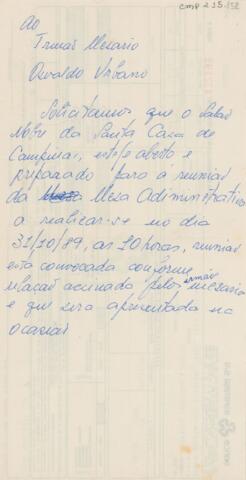 cmp 2.15.152
Ao
Irmão Mesario
Osvaldo Urbano
Solicitamos que o Salão
Nobre da Santa Casa de
Campinas, esteja aberto e
preparado para a reunião
da Mesa Administrativa
a realizar-se no dia
31/10/89, as 10 horas, reunião
esta convocada conforme
relação assinada pelos irmãos mesarios
e que sera apresentada na
ocasião